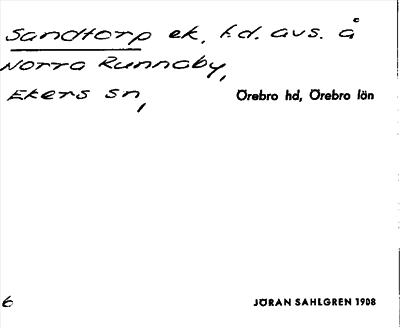 Sandtorp ek. f.d. avs. å
Norra Runnaby,
Ekers sn,
Örebro hd, Örebro län
6
JÖRAN SAHLGREN 1908